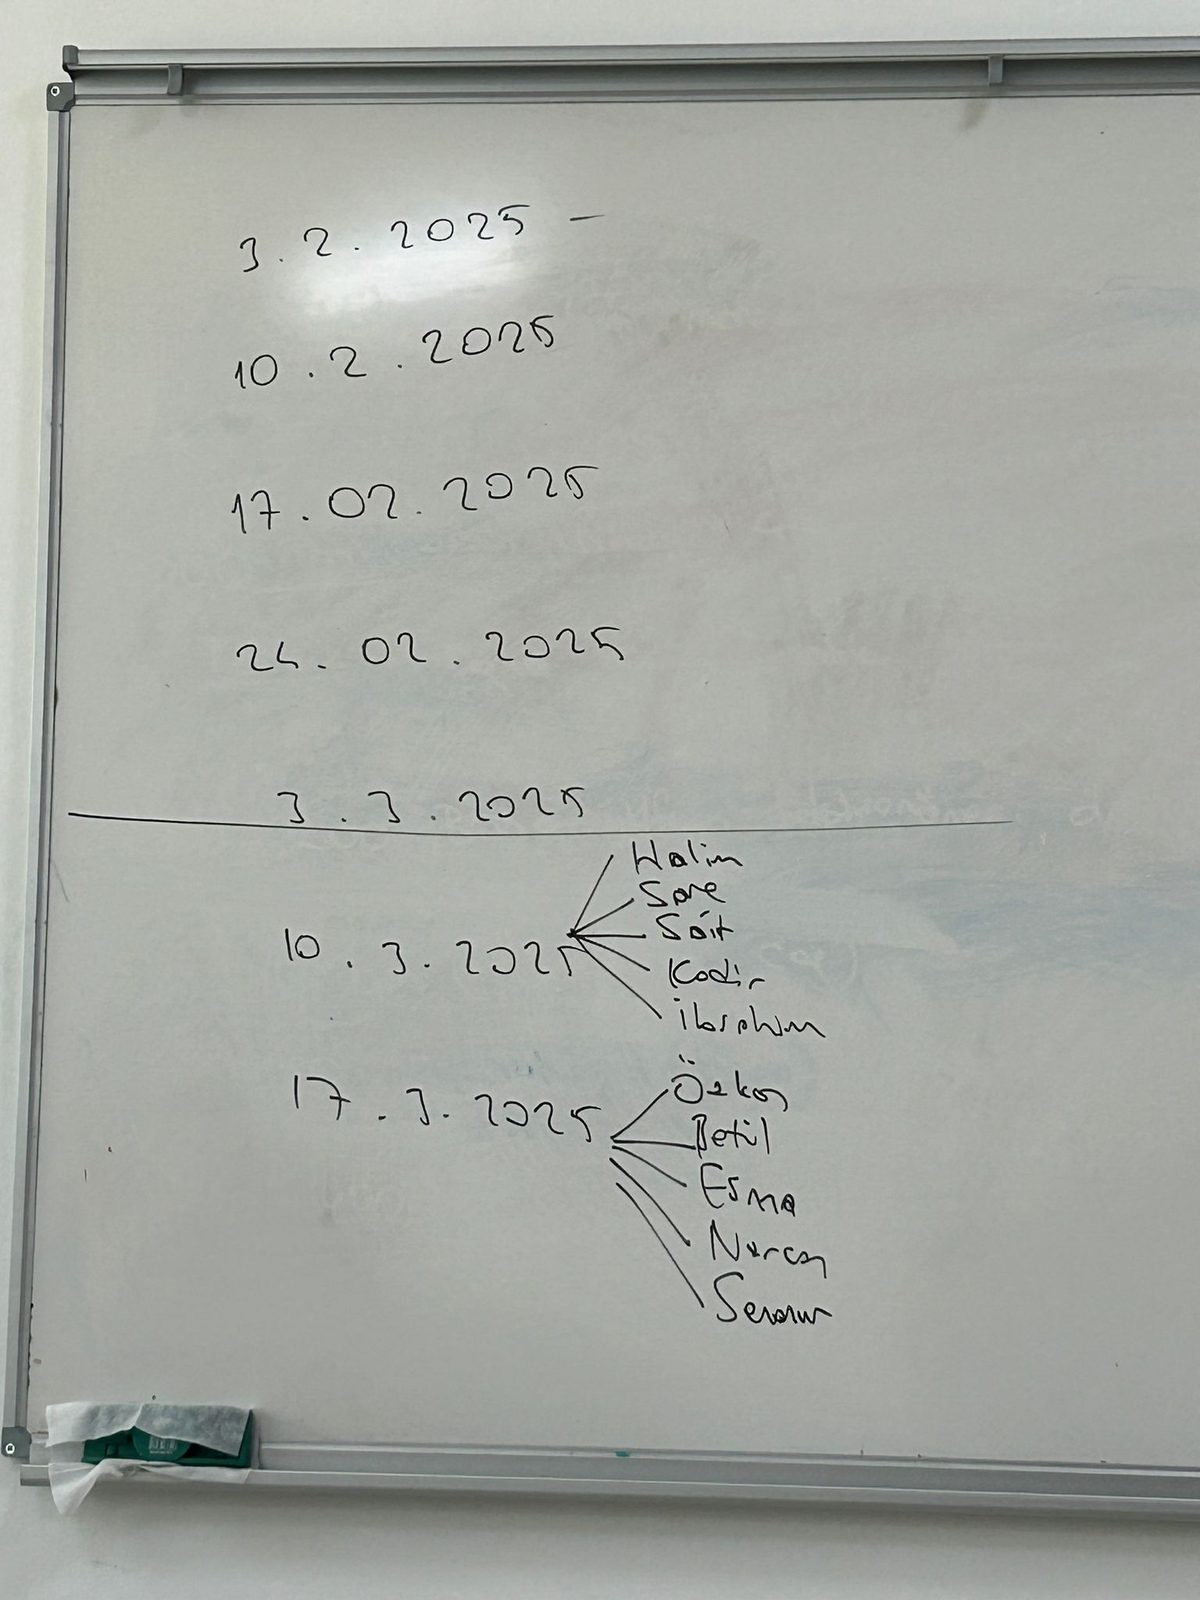 3.2.2025 -
10.2.2025
17.02.2025
24.02.2025
3.3.2025
10.3.2025
Halim
Sare
Sait
Kadir
ibrahim
17.3.2025
Özkan
Betül
Esma
Nurcan